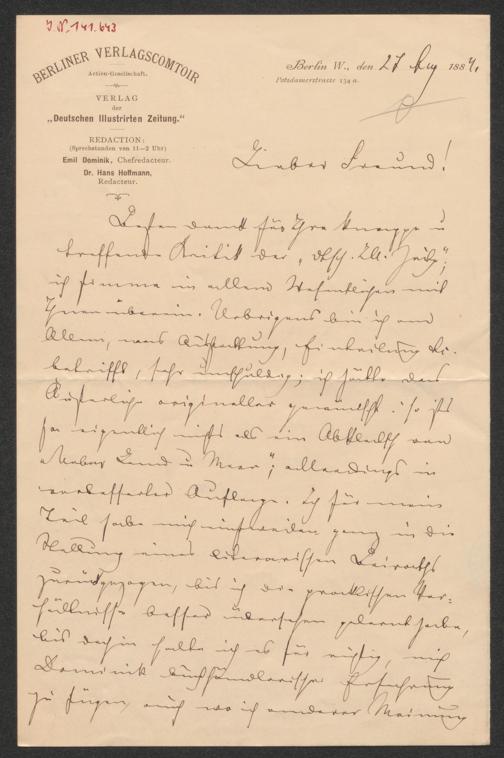 I. N. 141.643
BERLINER VERLAGSCOMTOIR
Actien-Gesellschaft.
VERLAG
der
„Deutschen Illustrirten Zeitung.“
REDACTION:
(Sprechstunden von 11—2 Uhr)
Emil Dominik, Chefredacteur.
Dr. Hans Hoffmann,
Redacteur.
Berlin W., den 27 Aug 1884.
Potsdamerstrasse 134 a.
Lieber Freund!
Besten Dank für Ihre knappe u
treffende Kritik der „dtsch. Ill. Zeitg“;
ich stimme in allem Wesentlichen mit
Ihnen überein. Uebrigens bin ich an
Allem, was Ausstattung, Eintheilung &c.
betrifft, sehr unschuldig; ich hätte das
Äußerliche origineller gewünscht: so ists
ja eigentlich nichts als ein Abklatsch von
„Ueber Land u Meer“; allerdings in
verbesserter Auflage. Ich für mein
Teil habe mich einstweilen ganz in die
Stellung eines literarischen Beiraths
zurückgezogen, bis ich die praktischen Ver-
hältnisse besser übersehen gelernt habe,
bis dahin halte ich es für richtig, mich
Dominik buchhändlerischer Erfahrung
zu fügen, auch wo ich anderer Meinung